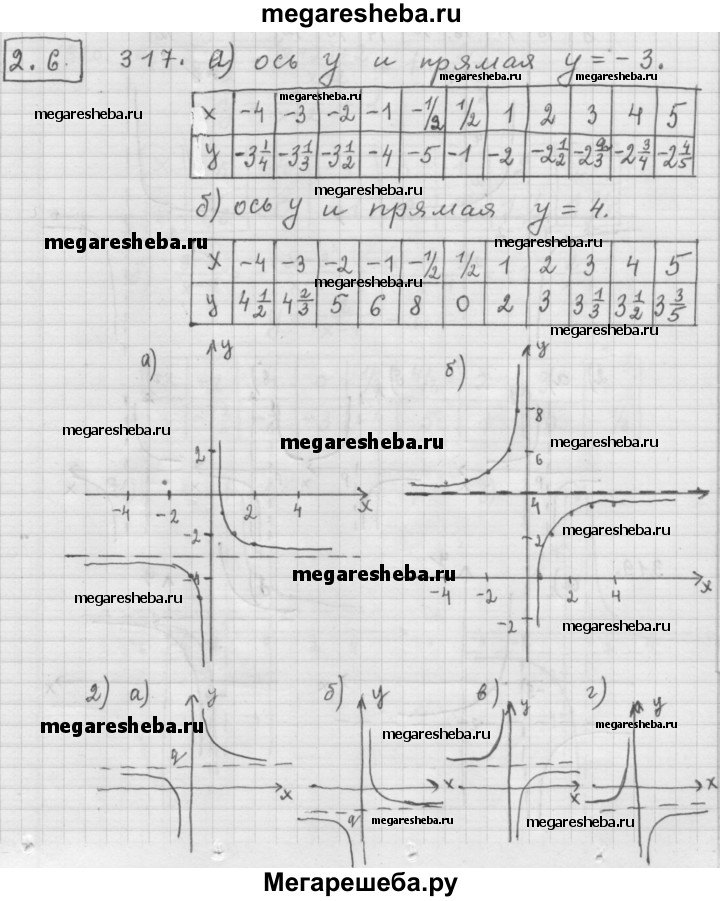 megaresheba.ru
2.6. 317. а) ось y и прямая y = -3.
megaresheba.ru megaresheba.ru
megaresheba.ru
x -4 -3 -2 -1 -1/2 1/2 1 2 3 4 5
megaresheba.ru
y -3 1/4 -3 1/3 -3 1/2 -4 -5 -1 -2 -2 1/2 -2 2/3 -2 3/4 -2 4/5
megaresheba.ru
б) ось y и прямая y = 4.
megaresheba.ru megaresheba.ru
x -4 -3 -2 -1 -1/2 1/2 1 2 3 4 5
megaresheba.ru
y 4 1/2 4 2/3 5 6 8 0 2 3 3 1/3 3 1/2 3 3/5
megaresheba.ru
а) y б) y
8
megaresheba.ru megaresheba.ru megaresheba.ru
2 6
-4 -2 2 4 x 4 x
-2 2 megaresheba.ru
megaresheba.ru
-4
megaresheba.ru -4 -2 2 4 x
-2 megaresheba.ru
2) а) y б) y в) y г) y
megaresheba.ru megaresheba.ru megaresheba.ru
q
x x x x
q megaresheba.ru megaresheba.ru
Мегарешеба.ру